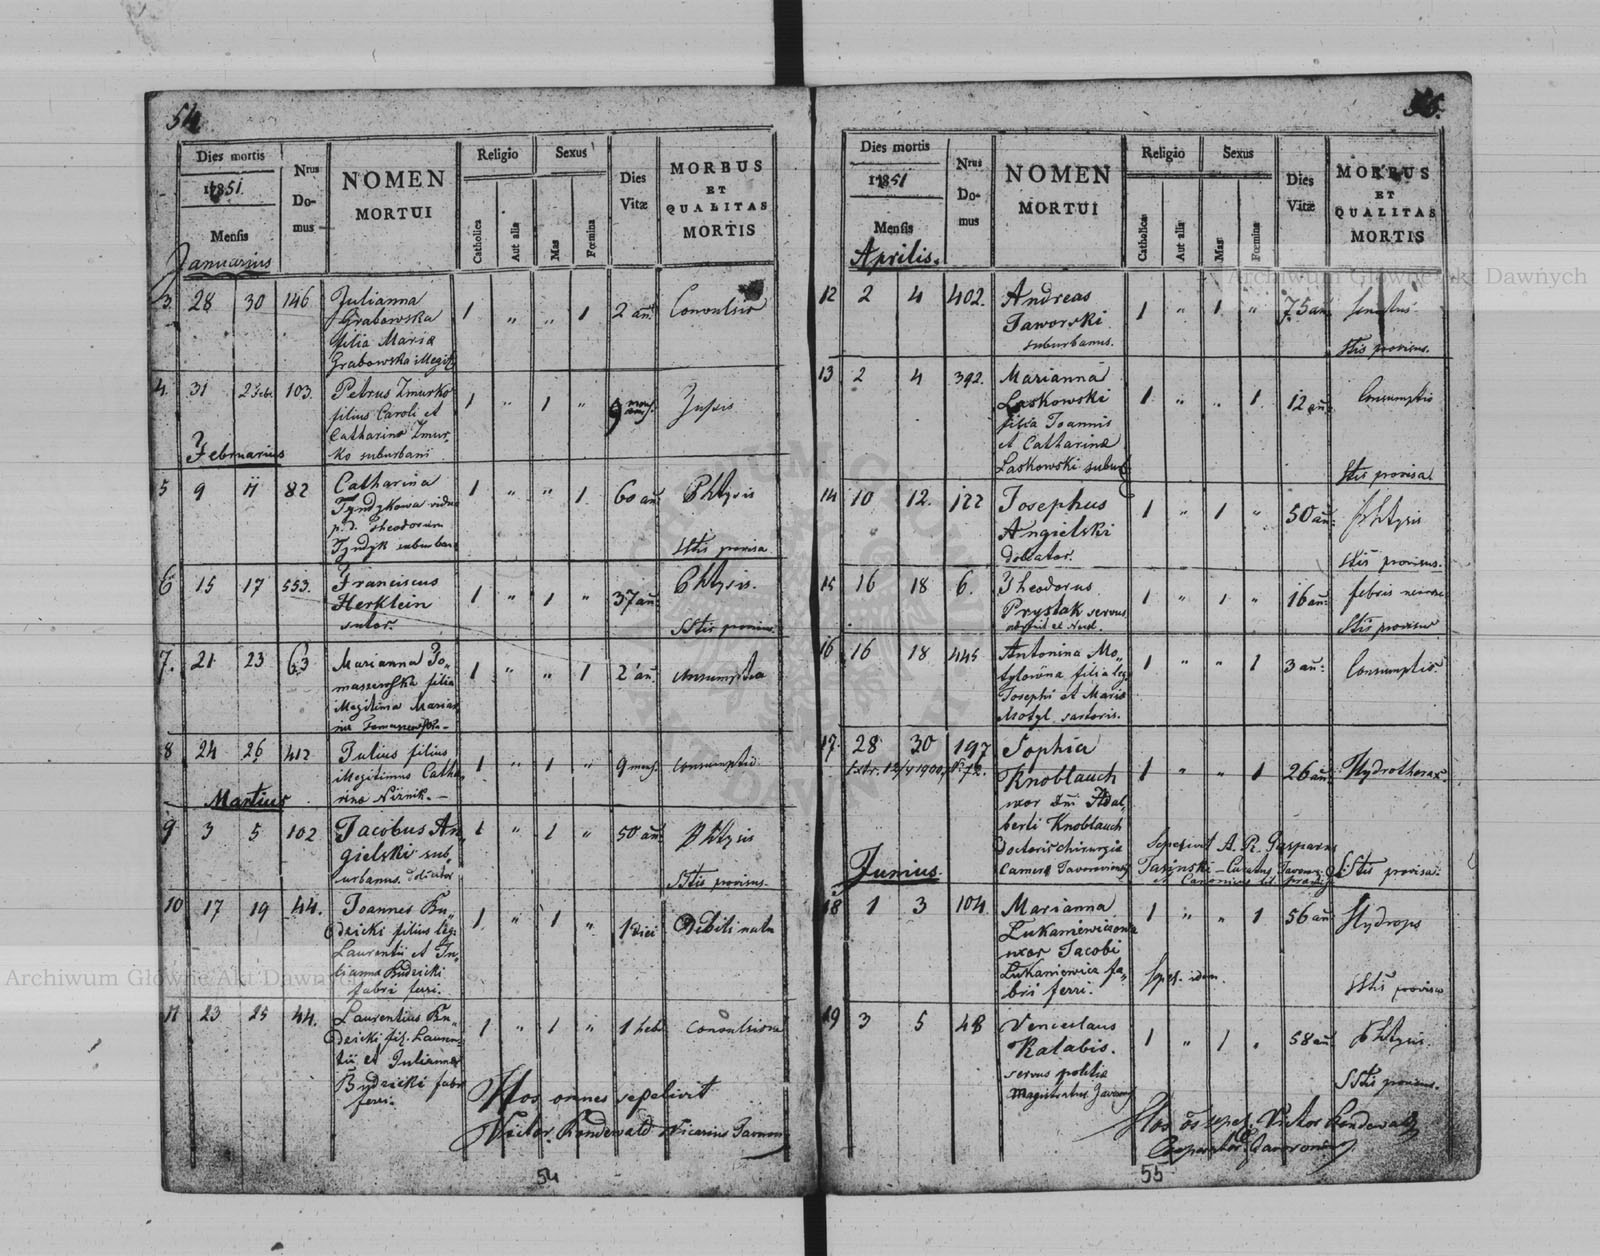 54
Dies mortis
1851
Mensis
Januarius
Nrus Domus
NOMEN
MORTUI
Religio
Catholica
Aut alia
Sexus
Mas
Fœmina
Dies
Vitæ
MORBUS
ET
QUALITAS
MORTIS
3. 28 30 146 Julianna 1 " " 1 2 añ. Convulsio
Grabowska
filia Mariæ
Grabowska illegit.
4. 31 2 Feb. 103. Petrus Zmurko 1 " 1 " 9
filius Caroli et
Catharina Zmur-
ko suburbani
Februarius
5 9 11 82 Catharina 1 " " 1 60 añ. Phtysis
Tyndykowa vidua
p. d. Theodorum
Tyndyk suburban
SStis provisa
6 15 17 553. Franciscus 1 " 1 " 37 añ. Phtysis.
Herklein
sutor.
SStis provisus
7. 21 23 63 Marianna To-
maszewska filia 1 " " 1 2 añ. consumptio
illegitima Marian
næ Tomaszewska-
8 24 26 412 Julius filius 1 " 1 " 9 mens. consumptio
illegitimus Catha-
rinæ Niznik.-
Martius
9 3 5 102 Jacobus An- 1 " 1 " 50 añ. Phtysis
gielski sub-
urbanus. doliator
SStis provisus.
10 17 19 44. Joannes Bu- 1 " 1 " 1 diei Debilis natu
dzicki filius leg.
Laurentii et Ju-
lianna Budzicki
fabri ferri.
11 23 25 44. Laurentius Bu- 1 " 1 " 1 heb. Convulsiones
dzicki fil. Lauren-
tii et Julianna
Budzicki fabri
ferri.
Hos omnes sepelivit
Victor Kondewald Vicarius Javorov
54
55.
Dies mortis
1851
Mensis
Aprilis.
Nrus
Do-
mus
NOMEN
MORTUI
Religio
Catholica
Aut alia
Sexus
Mas
Fœmina
Dies
Vitæ
MORBUS
ET
QUALITAS
MORTIS
12 2 4 402. Andreas 1 " 1 " 75 añ.
Jaworski
suburbanus.
SStis provisus.
13 2 4 392. Marianna 1 " " 1 12 añ. Consumptio
Laskowski
filia Joannis
et Catharinæ
Laskowski suburb
SStis provisa
14 10 12. 122 Josephus 1 " 1 " 50 añ. Phtysis
Angielski
doliator.
SStis provisus.
15 16 18 6. Theodorus 1 " 1 " 16 añ. febris
Prystak servus
SStis provisus
16 16 18 445 Antonina Mo- 1 " " 1 3 añ. Consumptio
tylowna filia leg.
Josephi et Maria
Motyl sartoris.
17. 28 30 197 Sophia
Extr. 12/4 1900, No 72. Knoblauch 1 " " 1 26 añ. Hydrothorax
uxor Dni Adal-
berti Knoblauch
Doctoris chirurgiæ
Cameræ Javoroviensis
Sepelivit A. R. Gasparus
Jasinski - Curatus Javorov.
et Canonicus
SStis provisa.
Junius.
18 1 3 104 Marianna 1 " " 1 56 añ. Hydrops
Lukaniewiczowa
uxor Jacobi
Lukaniewicz fa-
bri ferri.
Sepel. idem.
SStis provisa
19 3 5 48 Venceslaus 1 " 1 " 58 añ. Phtysis.
Kalabis.
servus politiæ
Magistratus Javorov
SStis provisus.
Hos os sepel. Victor Kondewald
Cooperator Javoroviens
55
Archiwum Główne Akt Dawnych
Archiwum Główne Akt Dawnych